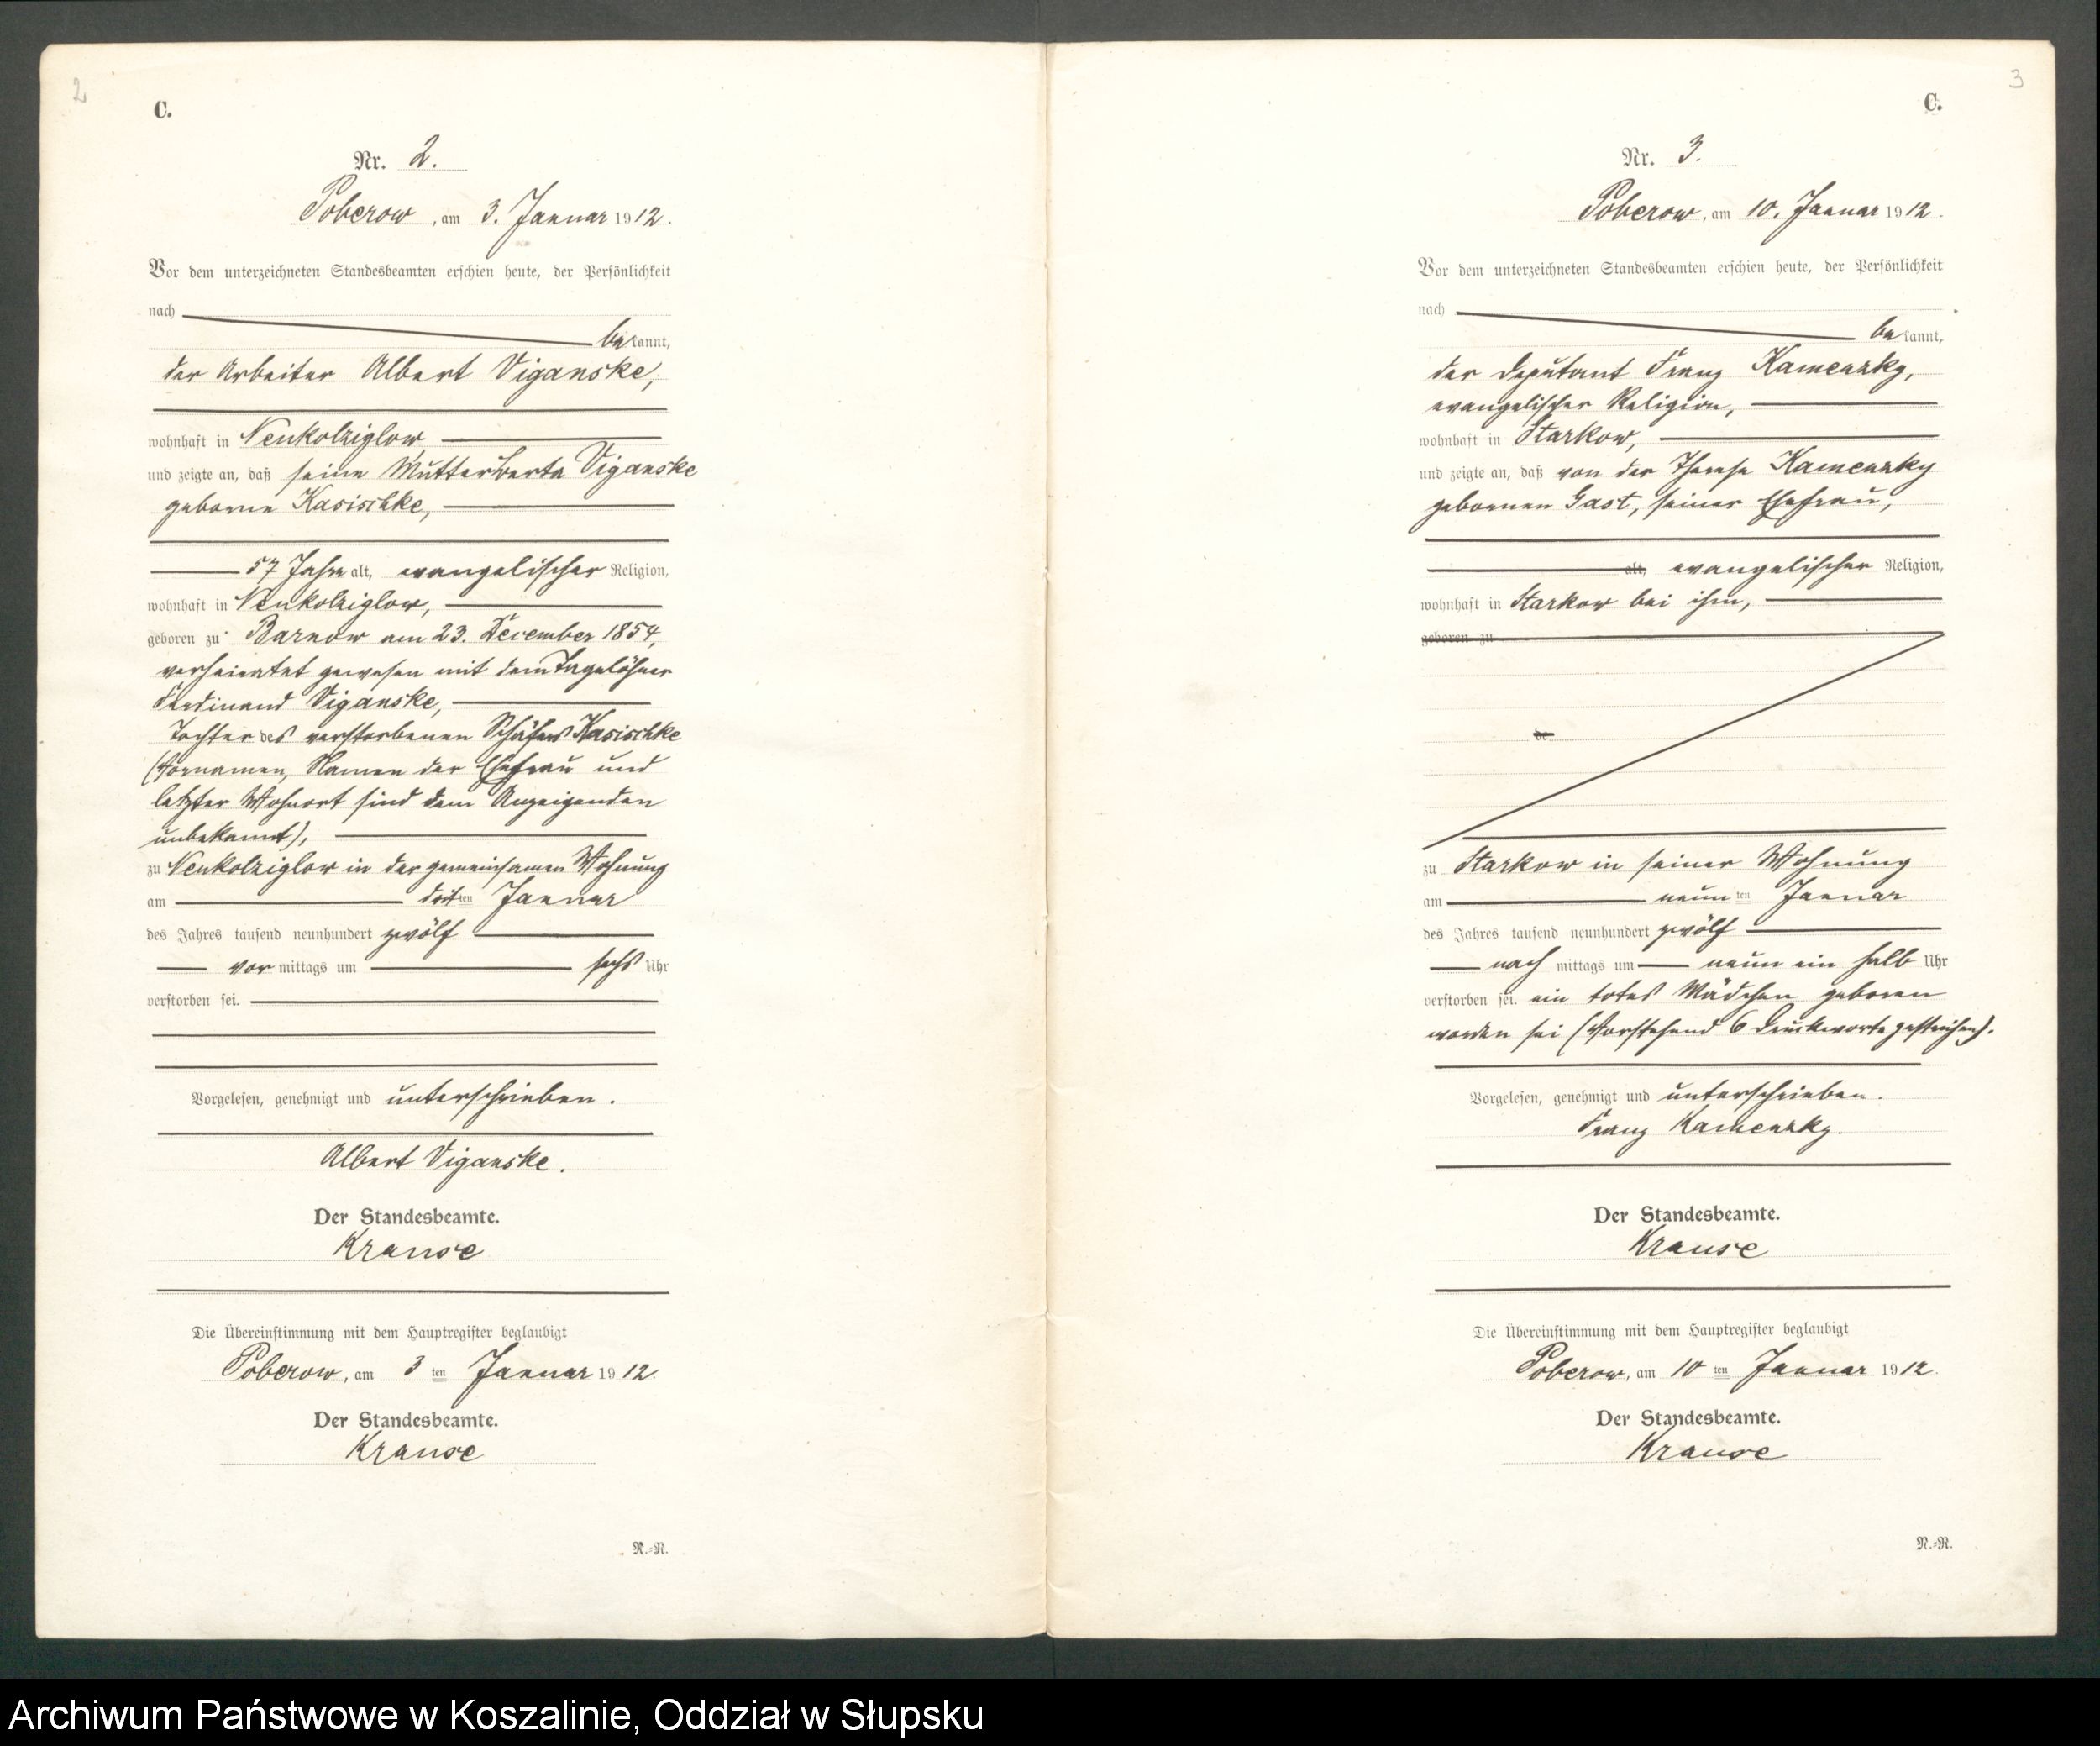 2
C.
Nr. 2.
Poberow, am 3. Januar 1912.
Vor dem unterzeichneten Standesbeamten erschien heute, der Persönlichkeit
nach
bekannt,
der Arbeiter Albert Viganske,
wohnhaft in Neukolziglow,
und zeigte an, daß seine Mutter Berta Viganske
geborne Kasischke,
57 Jahre alt, evangelischer Religion,
wohnhaft in Neukolziglow,
geboren zu Barnow am 23. December 1854,
verheiratet gewesen mit dem Tagelöhner
Ferdinand Viganske,
Tochter des verstorbenen Schäfers Kasischke
(Vornamen, Namen der Ehefrau und
letzter Wohnort sind dem Anzeigenden
unbekannt),
zu Neukolziglow in der gemeinsamen Wohnung
am dritten Januar
des Jahres tausend neunhundert zwölf
vor mittags um sechs Uhr
verstorben sei.
Vorgelesen, genehmigt und unterschrieben.
Albert Viganske.
Der Standesbeamte.
Krause
Die Übereinstimmung mit dem Hauptregister beglaubigt
Poberow, am 3 ten Januar 1912.
Der Standesbeamte.
Krause
R.-R.
3
C.
Nr. 3.
Poberow, am 10. Januar 1912.
Vor dem unterzeichneten Standesbeamten erschien heute, der Persönlichkeit
nach
bekannt,
der Deputant Franz Kamenzky,
evangelischer Religion,
wohnhaft in Starkow,
und zeigte an, daß von der Therese Kamenzky
gebornen Gast, seiner Ehefrau,
alt, evangelischer Religion,
wohnhaft in Starkow bei ihm,
geboren zu
de
zu Starkow in seiner Wohnung
am neun ten Januar
des Jahres tausend neunhundert zwölf
nach mittags um neun ein halb Uhr
verstorben sei. ein totes Mädchen geboren
worden sei (Vorstehend 6 Druckworte gestrichen).
Vorgelesen, genehmigt und unterschrieben.
Franz Kamenzky.
Der Standesbeamte.
Krause
Die Übereinstimmung mit dem Hauptregister beglaubigt
Poberow, am 10 ten Januar 1912.
Der Standesbeamte.
Krause
R.-R.
Archiwum Państwowe w Koszalinie, Oddział w Słupsku